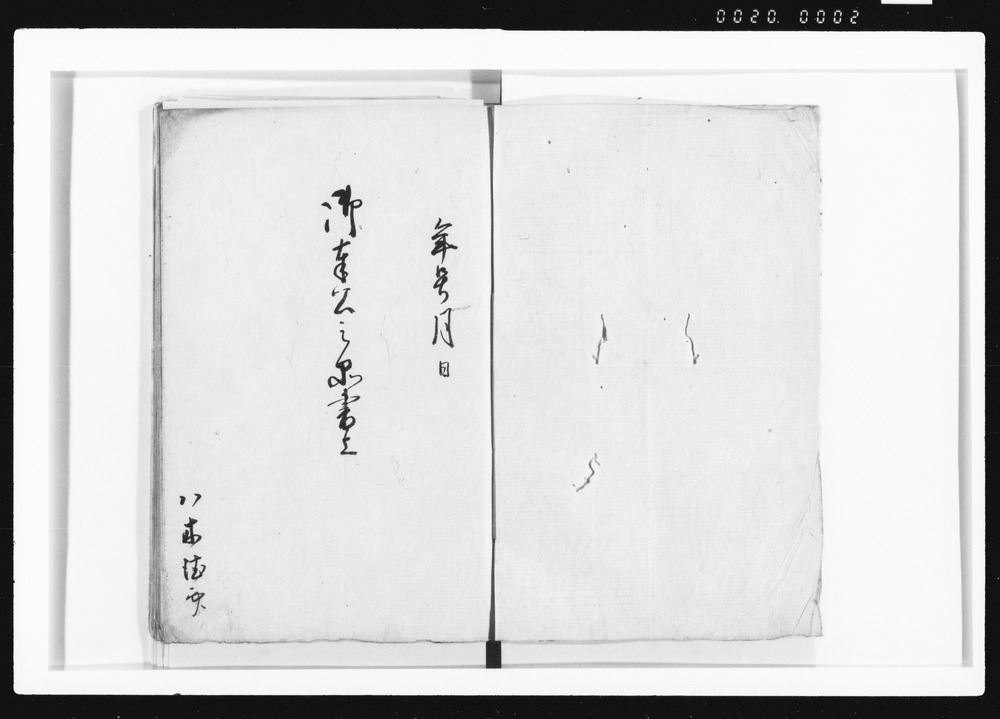 0020. 0002
年号月日
御奉公之品書上
八木